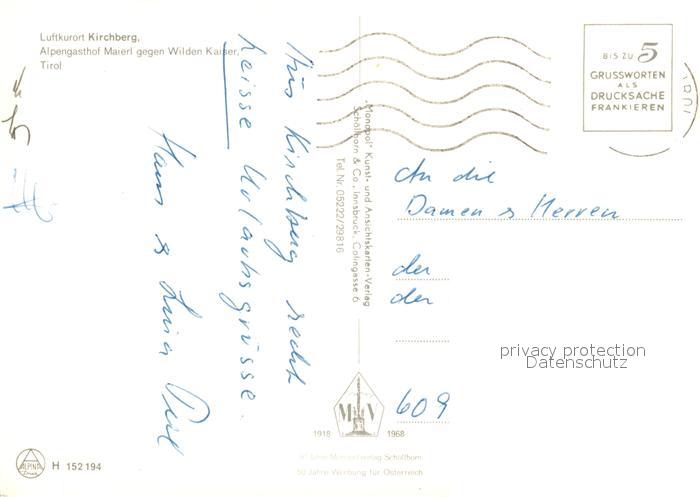 Luftkurort Kirchberg,
Alpengasthof Maierl gegen Wilden Kaiser,
Tirol
Aus Kirchberg recht
heisse Urlaubsgrüsse.
Hans & Luia
"Monopol" Kunst- und Ansichtskarten-Verlag
Schöllhorn & Co., Innsbruck, Colingasse 6
Tel. Nr. 05222/29816
BIS ZU 5
GRUSSWORTEN
ALS
DRUCKSACHE
FRANKIEREN
An die
Damen & Herren
der
der
privacy protection
Datenschutz
609
M V
1918 1968
50 Jahre Monopol-Verlag Schöllhorn
50 Jahre Werbung für Österreich
ALPINA
Druck
H 152 194